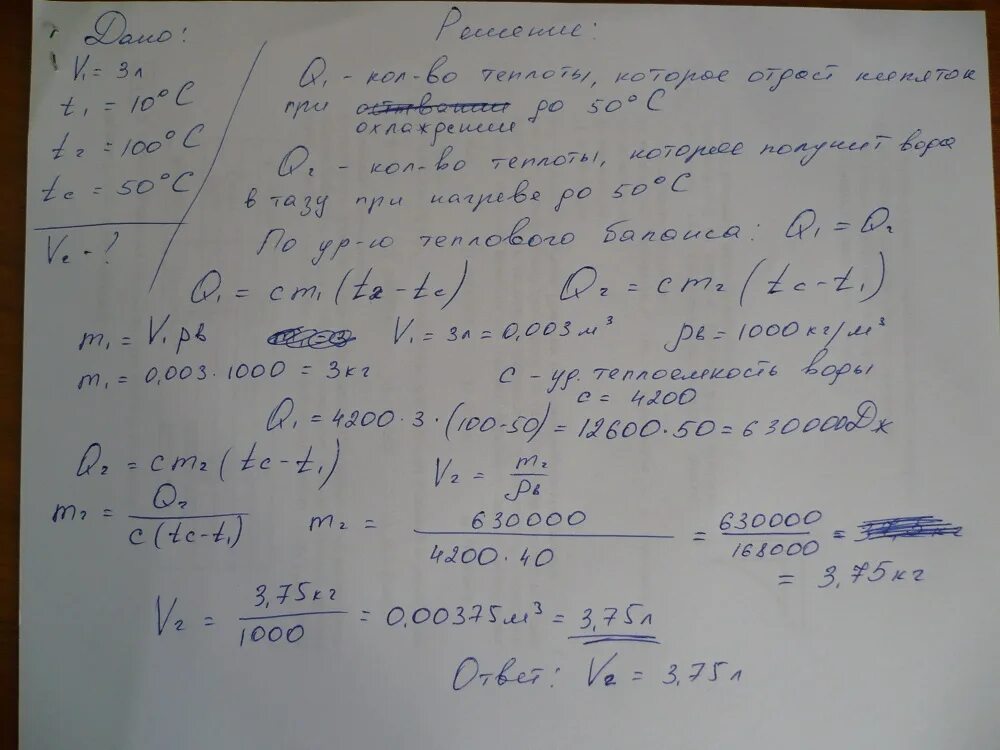 Дано:
V₁ = 3л
t₁ = 10°C
t₂ = 100°C
tc = 50°C
V₂ - ?
Решение:
Q₁ - кол-во теплоты, которое отдаст кипяток
при охлаждении до 50°C
Q₂ - кол-во теплоты, которое получит вода
в тазу при нагреве до 50°C
По ур-ю теплового баланса: Q₁ = Q₂
Q₁ = cm₁(t₂ - tc) Q₂ = cm₂(tc - t₁)
m₁ = V₁ρв V₁ = 3л = 0,003м³ ρв = 1000кг/м³
m₁ = 0,003·1000 = 3кг c - уд. теплоемкость воды
c = 4200
Q₁ = 4200·3·(100-50) = 12600·50 = 630000Дж
Q₂ = cm₂(tc - t₁) V₂ = m₂/ρв
m₂ = Q₂/c(tc-t₁) m₂ = 630000/4200·40 = 630000/168000 =
= 3,75кг
V₂ = 3,75кг/1000 = 0,00375м³ = 3,75л
Ответ: V₂ = 3,75л